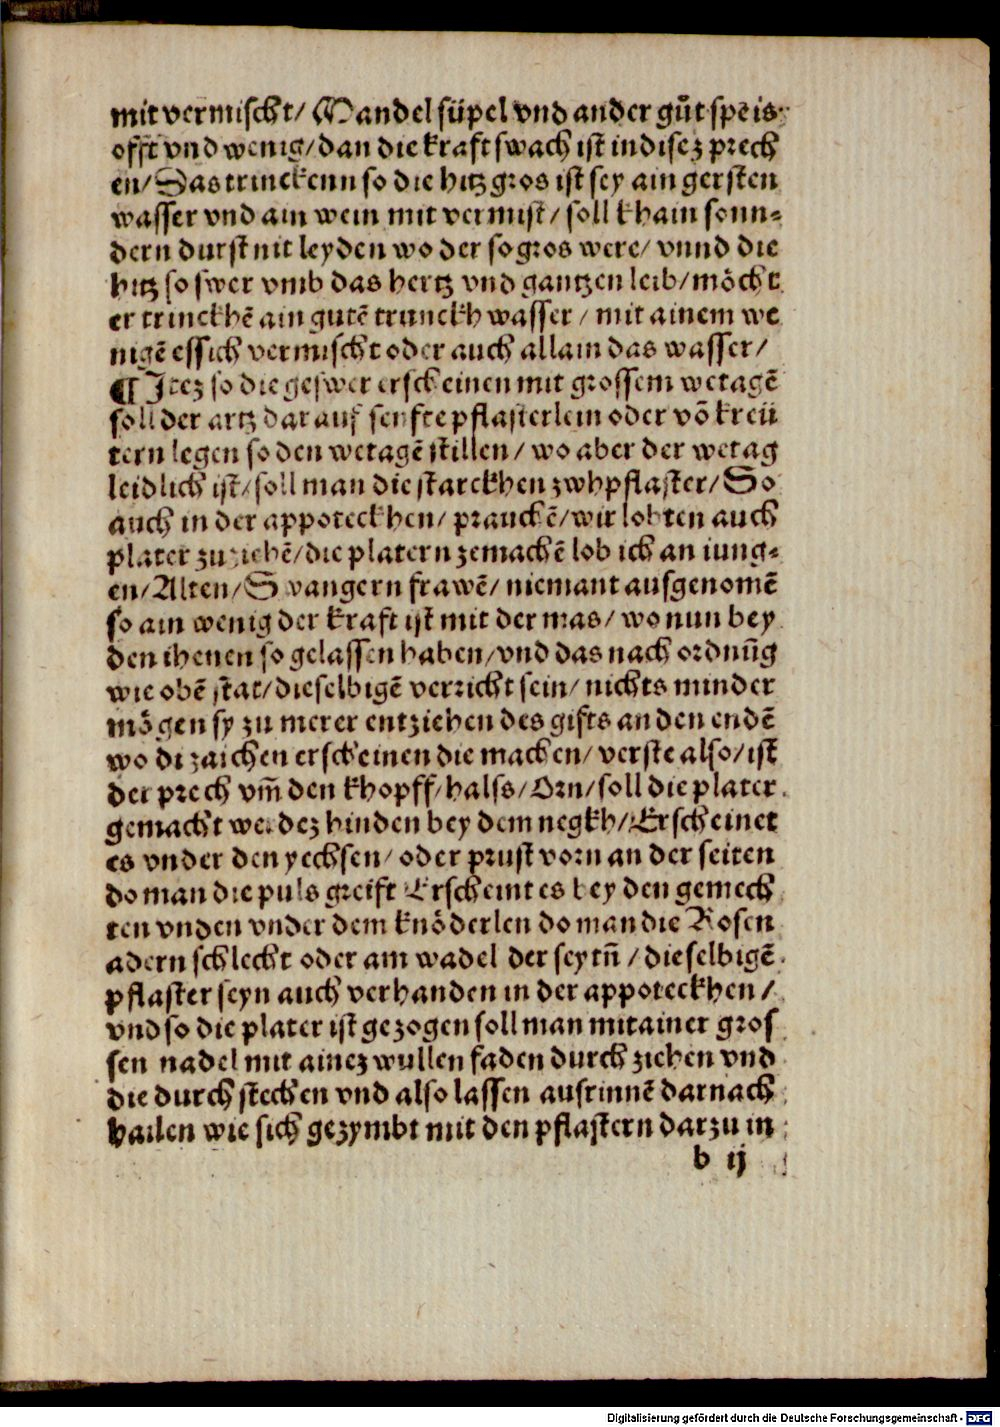 mit vermischt/ Mandel süpel vnd ander gůt speis
offt vnd wenig/ dan die kraft swach ist in disez prech
en/ Das trinckenn so die hitz gros ist sey ain gersten
wasser vnd ain wein mit vermist/ soll khain sonn⸗
dern durst nit leyden wo der so gros were/ vnnd die
hitz so swer vmb das hertz vnd gantzen leib/ möcht
er trinckhē ain gutē trunckh wasser / mit ainem we
nigē essich vermischt oder auch allain das wasser/
¶ Itez so die geswer erscheinen mit grossem wetagē
soll der artz dar auf senfte pflasterlein oder vō kreü
tern legen so den wetagē stillen/ wo aber der wetag
leidlich ist/ soll man die starckhen zwhpflaster/ So
auch in der appoteckhen/ prauckē/ wir lobten auch
plater zu ziehē/ die platern zemachē lob ich an iung⸗
en/ Alten/ Swangern frawē/ niemant ausgenomē
so ain wenig der kraft ist mit der mas/ wo nun bey
den ihenen so gelassen haben/ vnd das nach ordnūg
wie obē stat/ dieselbigē verricht sein/ nichts minder
mögen sy zu merer entziehen des gifts an den endē
wo di zaichen erscheinen die machen/ verste also/ ist
der prech vm̄ den khopff/ halss/ Orn/ soll die plater
gemacht werdez hinden bey dem negkh/ Erscheinet
es vnder den yechsen/ oder prust vorn an der seiten
do man die puls greift Erscheint es bey den gemech
ten vnden vnder dem knöderlen do man die Rosen
adern schlecht oder am wadel der seytn̄ / dieselbigē
pflaster seyn auch verhanden in der appoteckhen /
vnd so die plater ist gezogen soll man mit ainer gros
sen nadel mit ainez wullen faden durch ziehen vnd
die durch stechen vnd also lassen ausrinnē darnach
hailen wie sich gezymbt mit den pflastern darzu in
b ij
Digitalisierung gefördert durch die Deutsche Forschungsgemeinschaft - DFG